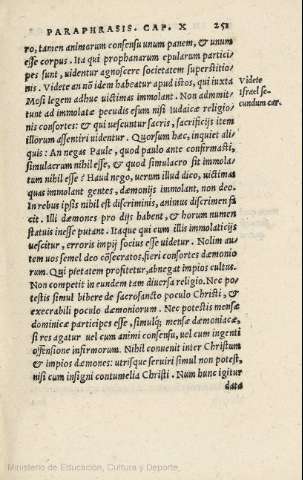 PARAPHRASIS. CAP. X 251
ro, tamen animorum consensu unum panem, & unum
esse corpus. Ita qui prophanarum epularum partici⸗
pes sunt, uidentur agnoscere societatem superstitio⸗
nis. Videte an nō idem habeatur apud istos, qui iuxta
Mosi legem adhuc uictimas immolant. Non admit⸗
tunt ad immolatæ pecudis esum nisi Iudaicæ religio⸗
nis consortes: & qui uescuntur sacris, sacrificijs item
illorum assentiri uidentur. Quorsum hæc, inquiet ali⸗
quis: An negas Paule, quod paulo ante confirmasti,
simulacrum nihil esse, & quod simulacro sit immola⸗
tum nihil esse? Haud nego, uerum illud dico, uictimas
quas immolant gentes, dæmonijs immolant, non deo.
In rebus ipsis nihil est discriminis, animus discrimen fa
cit. Illi dæmones pro dijs habent, & horum numen
statuis inesse putant. Itaque qui cum illis immolaticijs
uescitur, erroris impij socius esse uidetur. Nolim au⸗
tem uos semel deo cōsecratos, fieri consortes dæmonio
rum. Qui pietatem profitetur, abnegat impios cultus.
Non competit in eundem tam diuersa religio. Nec po⸗
testis simul bibere de sacrosancto poculo Christi, &
execrabili poculo dæmoniorum. Nec potestis mensæ
dominicæ participes esse, simulq; mensæ dæmoniacæ,
si res agatur uel cum animi consensu, uel cum ingenti
offensione infirmorum. Nihil conuenit inter Christum
& impios dæmones: utrisque seruiri simul non potest,
nisi cum insigni contumelia Christi. Num hunc igitur
data
Videte
Israel se⸗
cundum car.
Ministerio de Educación, Cultura y Deporte,